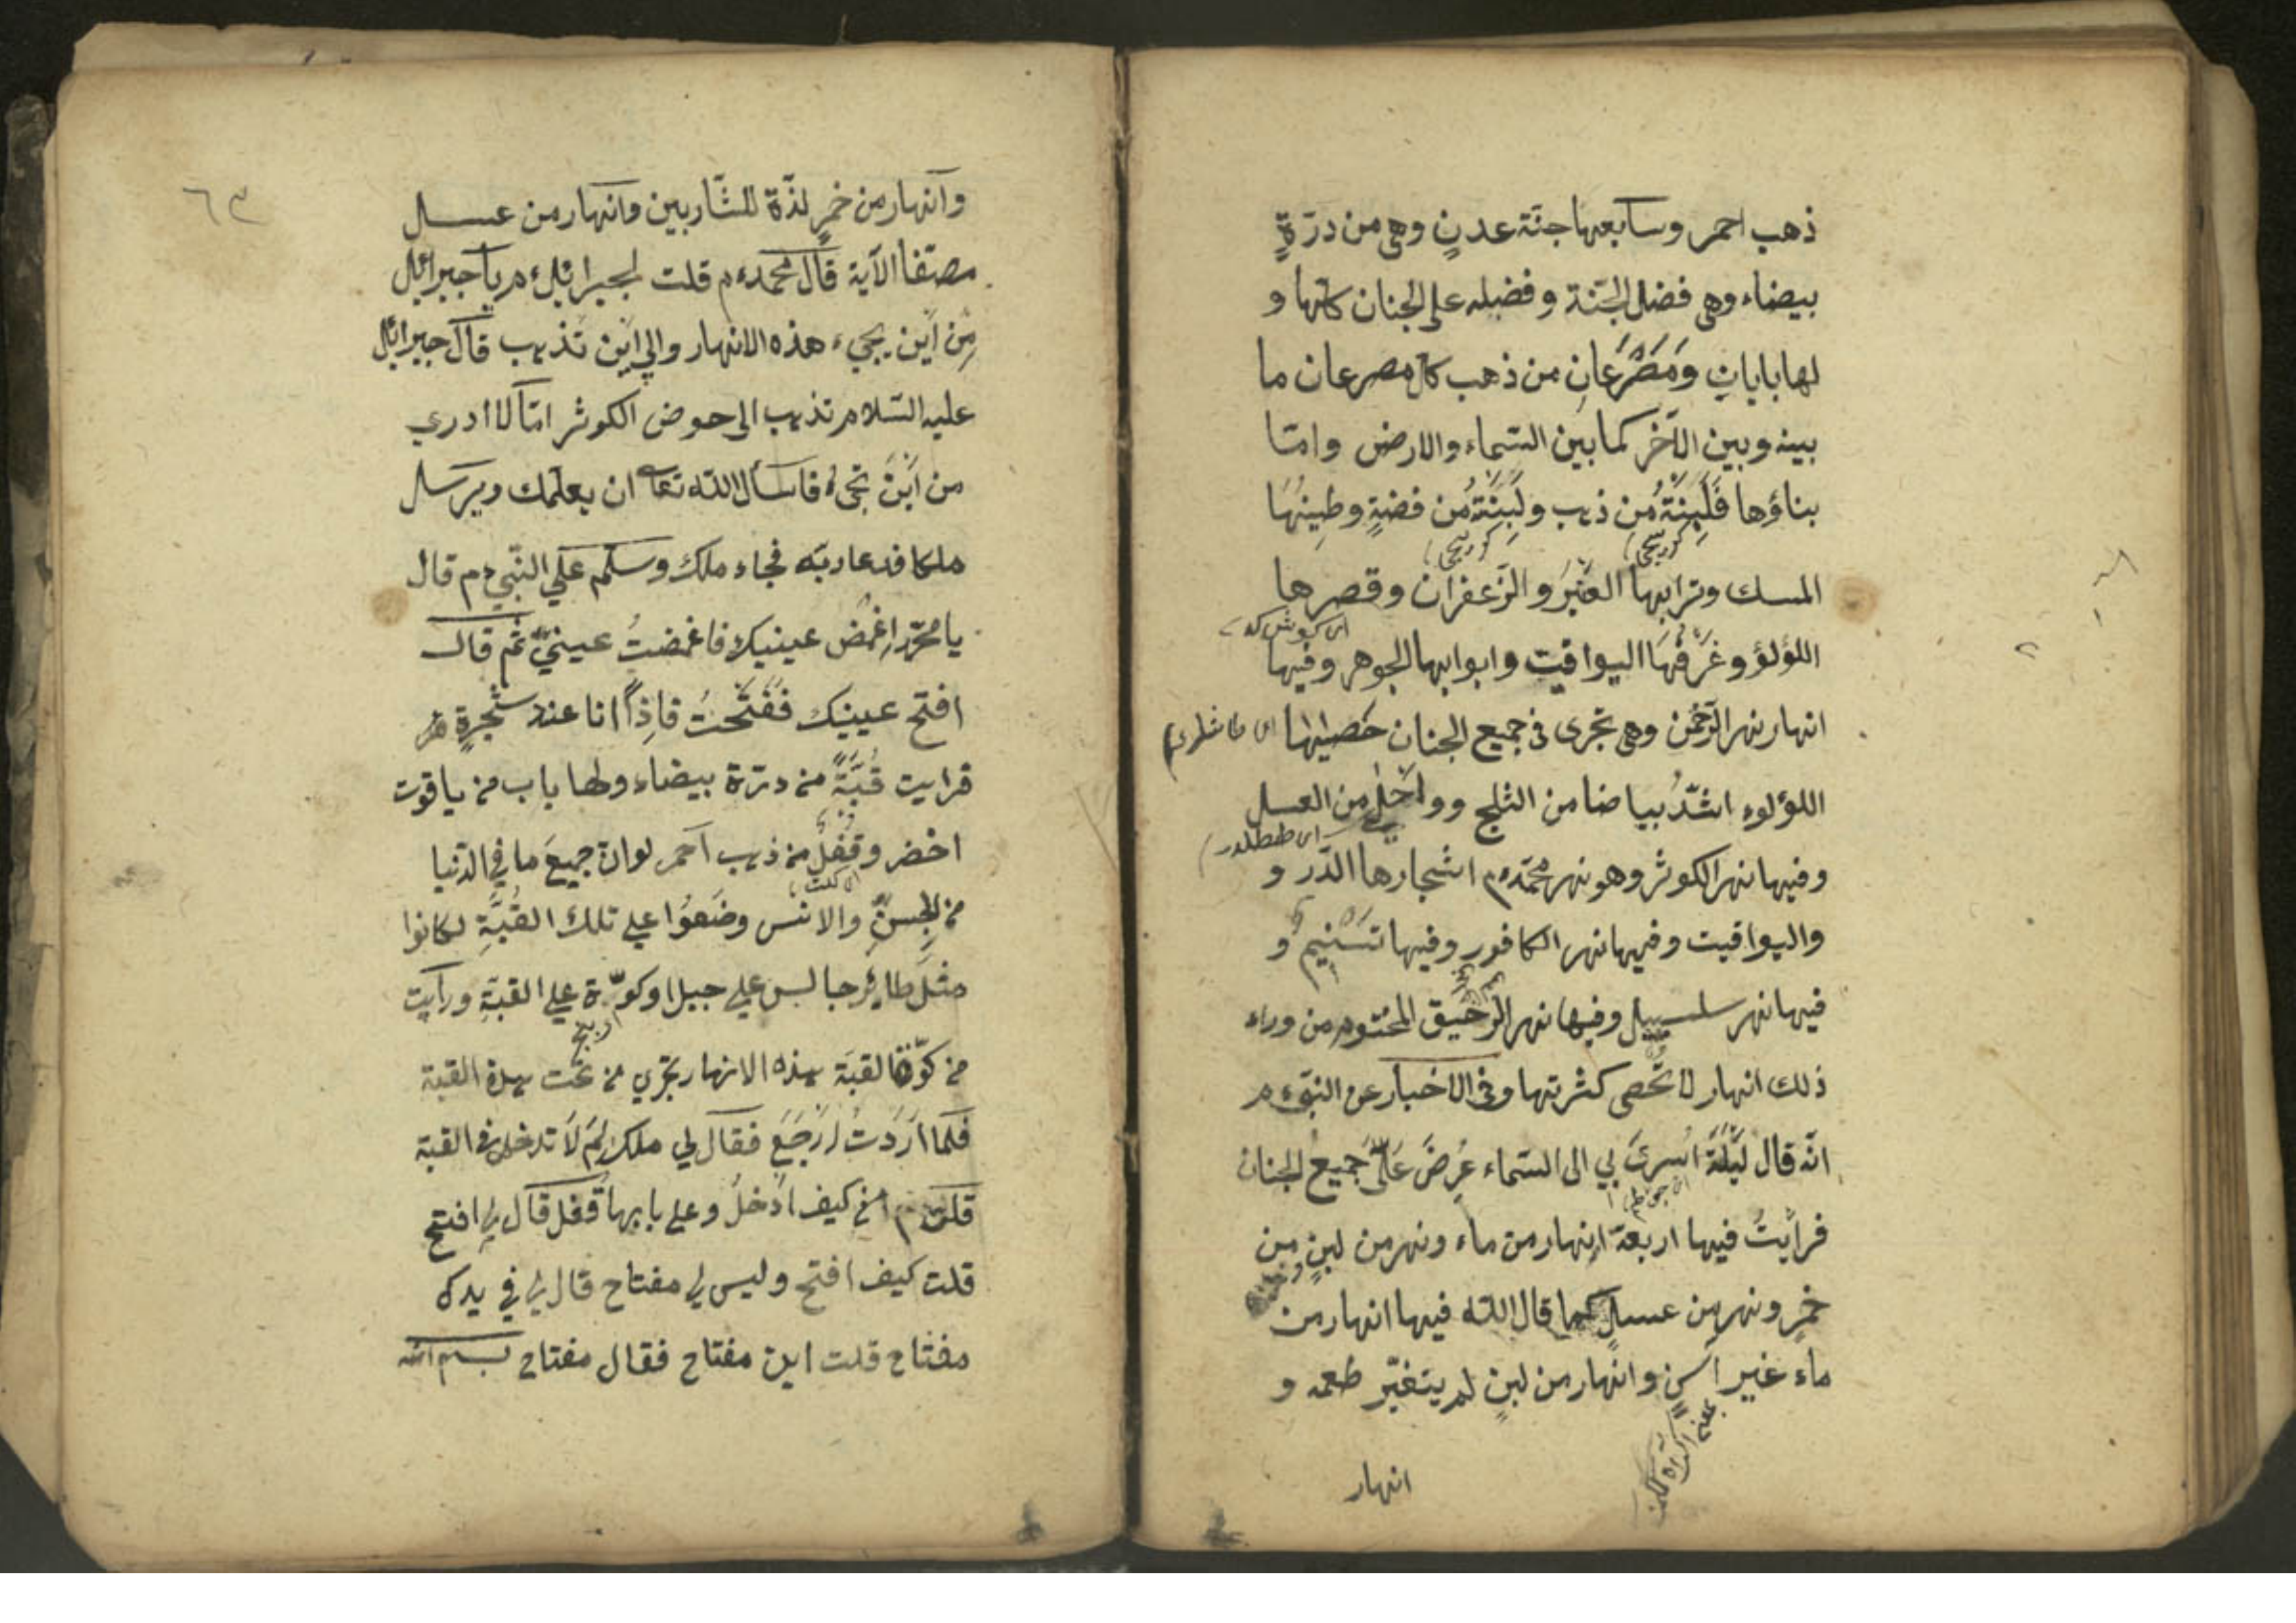 ذهب احمر وسابعها جنّة عدنٍ وهي من درّةٍ
بيضاء وهي فضل الجنّة وفضيله على الجنان كلّها و
لها بابان وَمَصْرَعَانِ من ذهب كل مصرعان ما
بينه وبين الآخر كما بين السّماء والارض وامّا
بناؤها فَلَبِنَةٌ مُن ذهب ولَبِنَةٌ مُن فضةٍ وطينُهَا
المسك وترابها العَنْبَرَ والزّعفران وقصرها
اللؤلؤ وغُرَفُهَا اليواقيت وابوابها الجوهر وفيها
انهار نهر الرّحْمن وهي تجرى فى جميع الجنان حَصيٰها
اللؤلوء اشدّ بياضا من الثلج وواَحْلٰى من العسل
وفيها نهر الكوثر وهو نهر محمّد ءم اشجارها الدّر و
واليواقيت وفيها نهر الكافور وفيها تَسْنيم و
فيها نهر سلسبيل وفيها نهر الرَّحيق المختوم من وراء
ذلك انهار لا تحصى كثرتها وفي الاخبار عن النبىّ ءم
انّه قال لَيْلَةً اسْرىَ بي الى السّماء عُرِضَ عَلَىَّ جميعُ الجنان
فرأيتُ فيها اربعة انهار من ماء ونهر من لبنٍ من
خمرٍ ونهر من عسلٍ كما قال الله فيها انهار من
ماء غير آسنٍ وانهار من لبنٍ لم يتغيّر طعمه و
انهار
٦٣
وانهار من خمرٍ لذّة للشّاربين وانهار من عسل
مصفّا الآية قال محمد ءم قلت لجبرائيل ءم يا جبرائيل
مِن اَين يجيء هذه الانهار والى اَيْن تذهب قال جبرائيل
عليه السّلام تذهب الى حوض الكوثر امّا لا ادري
من اَيْنَ تجىءُ فاسأل الله تعا ان يعلّمك ويرسل
ملكا فدعا ربّه فجاء ملك وسلّم على النّبي ءم قال
يا محمّد اِغْمُضْ عينيك فاغمضتُ عينيَّ ثم قال
افتح عينيك فَفَتَحْتُ فاِذاً انا عند شجرةٍ
فرايت قُبَّةً من درّة بيضاء ولها باب من ياقوت
اخضر وقُفْلٌ من ذهب احمر لو انّ جميعَ ما في الدّنيا
من الجنِّ والانس وضَعوُا على تلك القُبَّةِ لكانوا
مثلَ طائر جالس على جبل او كوّة على القبّة ورايت
من كوّة القبّة هذه الانهار تجري من تحت هذه القبة
فلما اَرَدتُ اَرْجَعَ فقال لي ملك لِمَ لَا تدخل في القبة
قلت كيف ادخلُ وعلى بابها قُفل قال لي افتح
قلت كيف افتح وليس لي مفتاح قال لي في يدك
مفتاح قلت اين مفتاح فقال مفتاح بسم الله